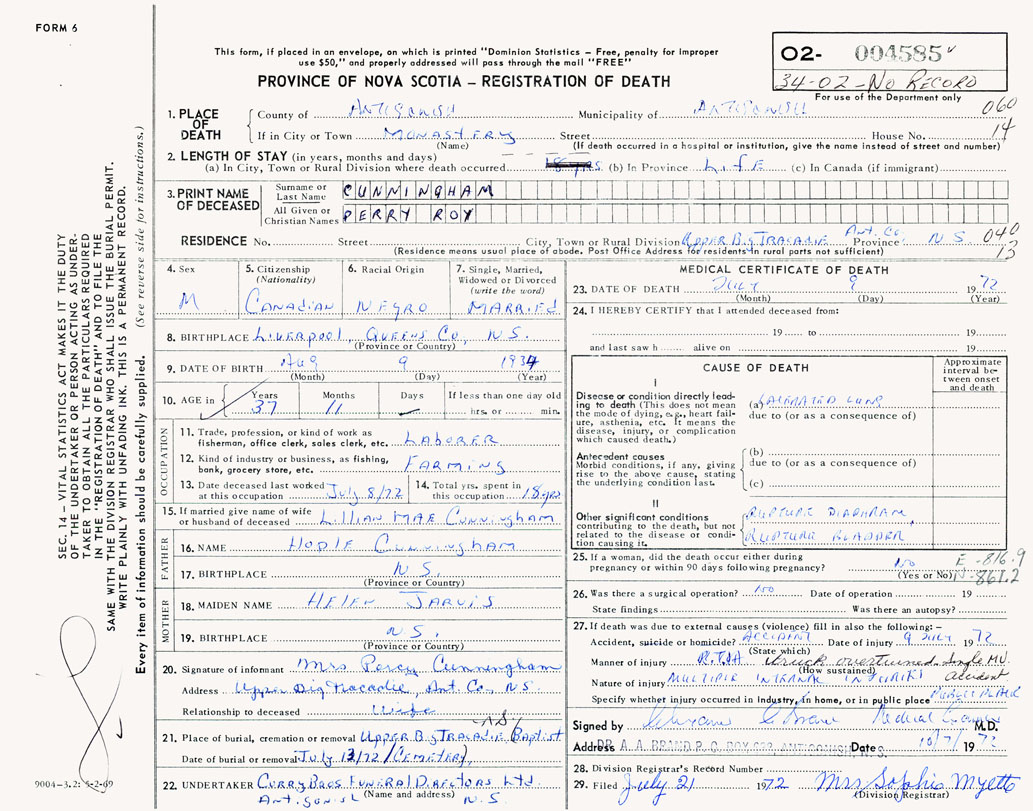 FORM 6
This form, if placed in an envelope, on which is printed "Dominion Statistics – Free, penalty for improper
use $50," and properly addressed will pass through the mail "FREE"
PROVINCE OF NOVA SCOTIA – REGISTRATION OF DEATH
O2- 004585
34-02-No RECORD
For use of the Department only
060
14
1. PLACE OF DEATH
County of ANTIGONISH Municipality of ANTIGONISH
If in City or Town MONASTERY Street House No.
(Name) (If death occurred in a hospital or institution, give the name instead of street and number)
2. LENGTH OF STAY (in years, months and days)
(a) In City, Town or Rural Division where death occurred 18 yrs (b) In Province LifE (c) In Canada (if immigrant)
3. PRINT NAME OF DECEASED
Surname or Last Name CUNNINGHAM
All Given or Christian Names PERRY ROY
RESIDENCE No. Street City, Town or Rural Division Upper Big TRACADIE Ant. Co. Province N S.
(Residence means usual place of abode. Post Office Address for residents in rural parts not sufficient)
040
13
4. Sex M
5. Citizenship (Nationality) CANADIAN
6. Racial Origin NEGRO
7. Single, Married, Widowed or Divorced (write the word) MARRIED
8. BIRTHPLACE LIVERPOOL, QUEENS Co, N.S.
(Province or Country)
9. DATE OF BIRTH Aug 9 1934
(Month) (Day) (Year)
10. AGE in Years 37 Months 11 Days If less than one day old hrs. or min.
OCCUPATION
11. Trade, profession, or kind of work as fisherman, office clerk, sales clerk, etc. LABORER
12. Kind of industry or business, as fishing, bank, grocery store, etc. FARMING
13. Date deceased last worked at this occupation July 8/72
14. Total yrs. spent in this occupation 18 yrs
15. If married give name of wife or husband of deceased LILLIAN MAE CUNNINGHAM
FATHER
16. NAME HOPIE CUNNINGHAM
17. BIRTHPLACE N S.
(Province or Country)
MOTHER
18. MAIDEN NAME HELEN JARVIS
19. BIRTHPLACE N S.
(Province or Country)
20. Signature of informant Mrs Percy Cunningham
Address Upper Big Tracadie, Ant. Co, N S
Relationship to deceased Wife
21. Place of burial, cremation or removal Upper Big TRACADIE Baptist N S.
Date of burial or removal July 12/72 (CEMETERY)
22. UNDERTAKER CURRY BROS FUNERAL DIRECTORS Ltd.
(Name and address)
ANTIGONISH N. S.
MEDICAL CERTIFICATE OF DEATH
23. DATE OF DEATH JULY 9 1972
(Month) (Day) (Year)
24. I HEREBY CERTIFY that I attended deceased from:
19 to 19
and last saw h alive on 19
CAUSE OF DEATH
Approximate interval between onset and death
I
Disease or condition directly leading to death (This does not mean the mode of dying, e.g., heart failure, asthenia, etc. It means the disease, injury, or complication which caused death.)
(a) LACERATED LUNG
due to (or as a consequence of)
Antecedent causes
Morbid conditions, if any, giving rise to the above cause, stating the underlying condition last.
(b)
due to (or as a consequence of)
(c)
II
Other significant conditions contributing to the death, but not related to the disease or condition causing it.
RUPTURE DIAPHRAM,
RUPTURE BLADDER
25. If a woman, did the death occur either during pregnancy or within 90 days following pregnancy? NO
(Yes or No)
E-816.9
N-861.2
26. Was there a surgical operation? NO Date of operation 19
State findings Was there an autopsy?
27. If death was due to external causes (violence) fill in also the following: –
Accident, suicide or homicide? ACCIDENT Date of injury 9 JULY 1972
(State which)
Manner of injury R.T.A truck overturned. Single M.V. accident
(How sustained)
Nature of injury MULTIPLE INTERNAL INJURIES
Specify whether injury occurred in industry, in home, or in public place PUBLIC PLACE
Signed by Medical Examiner M.D.
Address DR. A. A. BRAND, P. O. BOX ANTIGONISH Date 10/7/1972
28. Division Registrar's Record Number
29. Filed July 21 1972 Mrs Sophie Myette
(Division Registrar)
SEC. 14 – VITAL STATISTICS ACT MAKES IT THE DUTY
OF THE UNDERTAKER OR PERSON ACTING AS UNDERTAKER
TO OBTAIN ALL THE PARTICULARS REQUIRED
IN THE "REGISTRATION OF DEATH" AND TO FILE THE
SAME WITH THE DIVISION REGISTRAR WHO SHALL ISSUE THE BURIAL PERMIT.
WRITE PLAINLY WITH UNFADING INK. THIS IS A PERMANENT RECORD.
Every item of information should be carefully supplied. (See reverse side for instructions.)
9004-3.2: 5-2-69